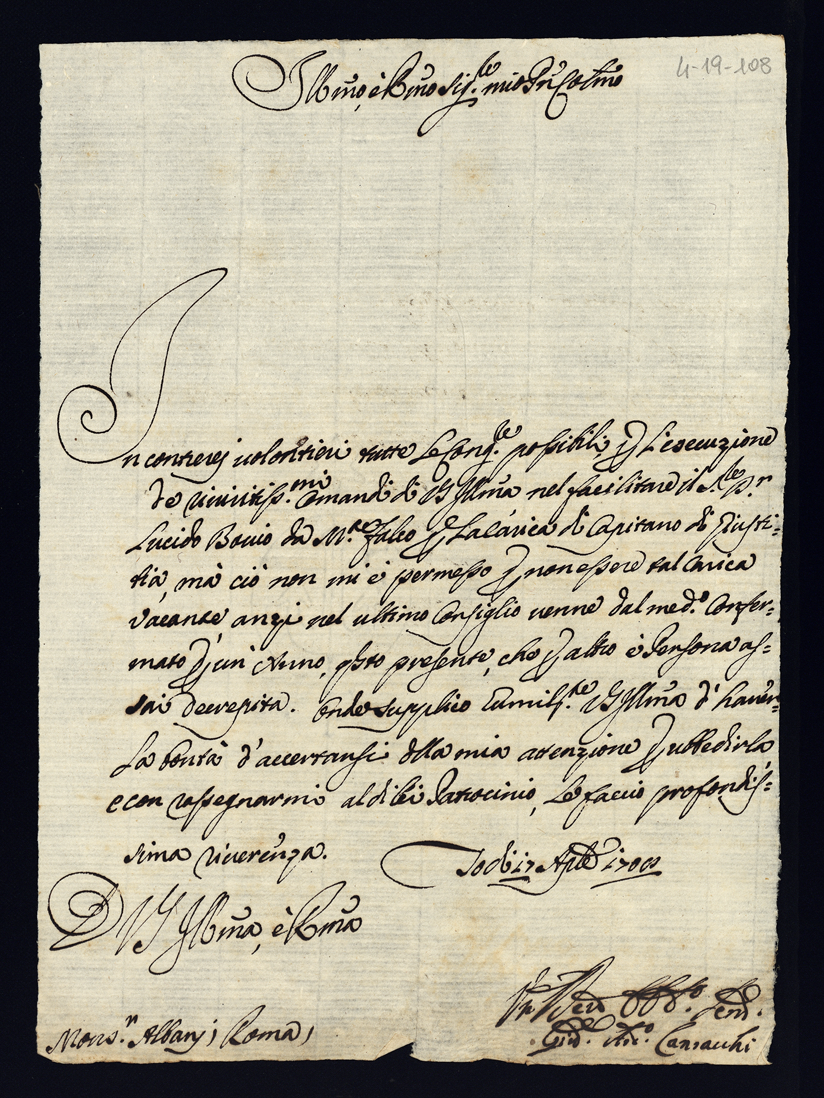 4-19-108
Illmo, è Rmo Sig.re mio Prn Colmo
Incontrerej volontieri tutte le Cong.re possibili p l'esecuzione
de riveritiss.mi Comandi di VS Illma nel facilitare il
Lucido Bovio da M.te Falco p la Carica di Capitano di Giusti=
tia, mà ciò non mi è permesso p non essere tal Carica
vacante anzi nel ultimo Consiglio venne dal med.o Confer=
mato p un' Anno, presente, che p altro è Persona as=
sai decrepita. Onde supplico Humilm.te VS Illma d'haver
la bontà d'accertarsi della mia attenzione p ubbedirla
e con rassegnarmi al di lei Patrocinio, le faccio profondis=
sima riverenza. Todi 17 Aple 1700
D VS Illma, è Rma
Mons.r Albanj Roma
Serv.
Cansacchi